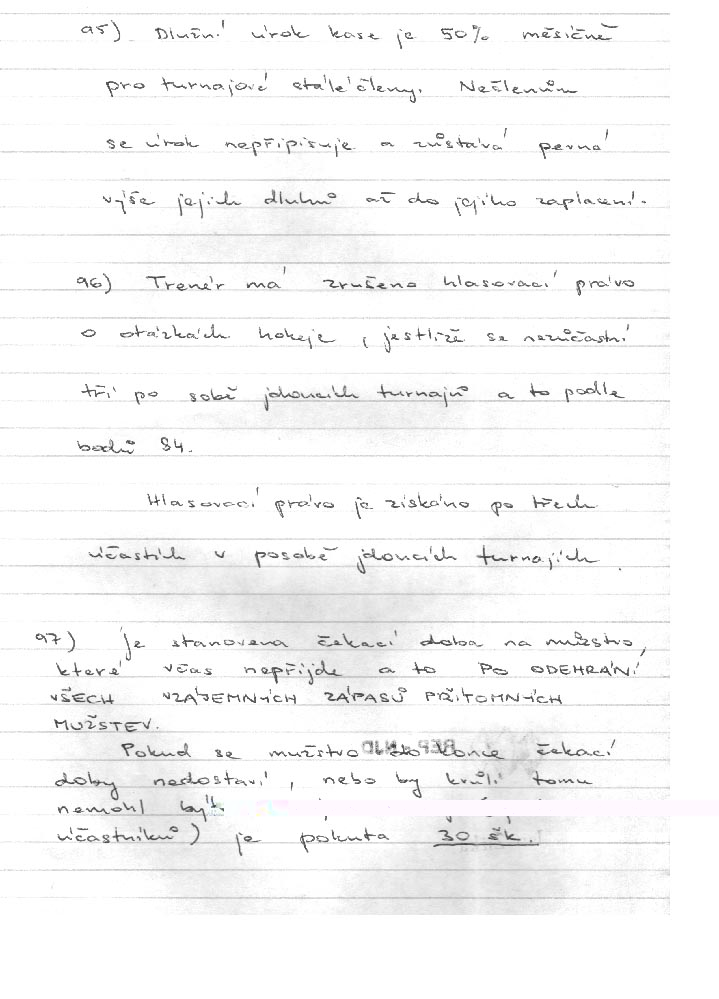 95) Dlužní úrok kase je 50% měsíčně
pro turnajové stálé členy. Nečlenům
se úrok nepřipisuje a zůstává pevná
výše jejich dluhů až do jejího zaplacení.
96) Trenér má zrušeno hlasovací právo
o otázkách hokeje, jestliže se nezúčastní
tří po sobě jdoucích turnajů a to podle
bodů 84.
Hlasovací právo je získáno po třech
účastích v posobě jdoucích turnajích.
97) Je stanovena čekací doba na mužstvo,
které včas nepřijde a to PO ODEHRÁNÍ
VŠECH VZÁJEMNÝCH ZÁPASŮ PŘÍTOMNÝCH
MUŽSTEV.
Pokud se mužstvo do konce čekací
doby nedostaví, nebo by kvůli tomu
nemohl být
účastníků) je pokuta 30 šk.